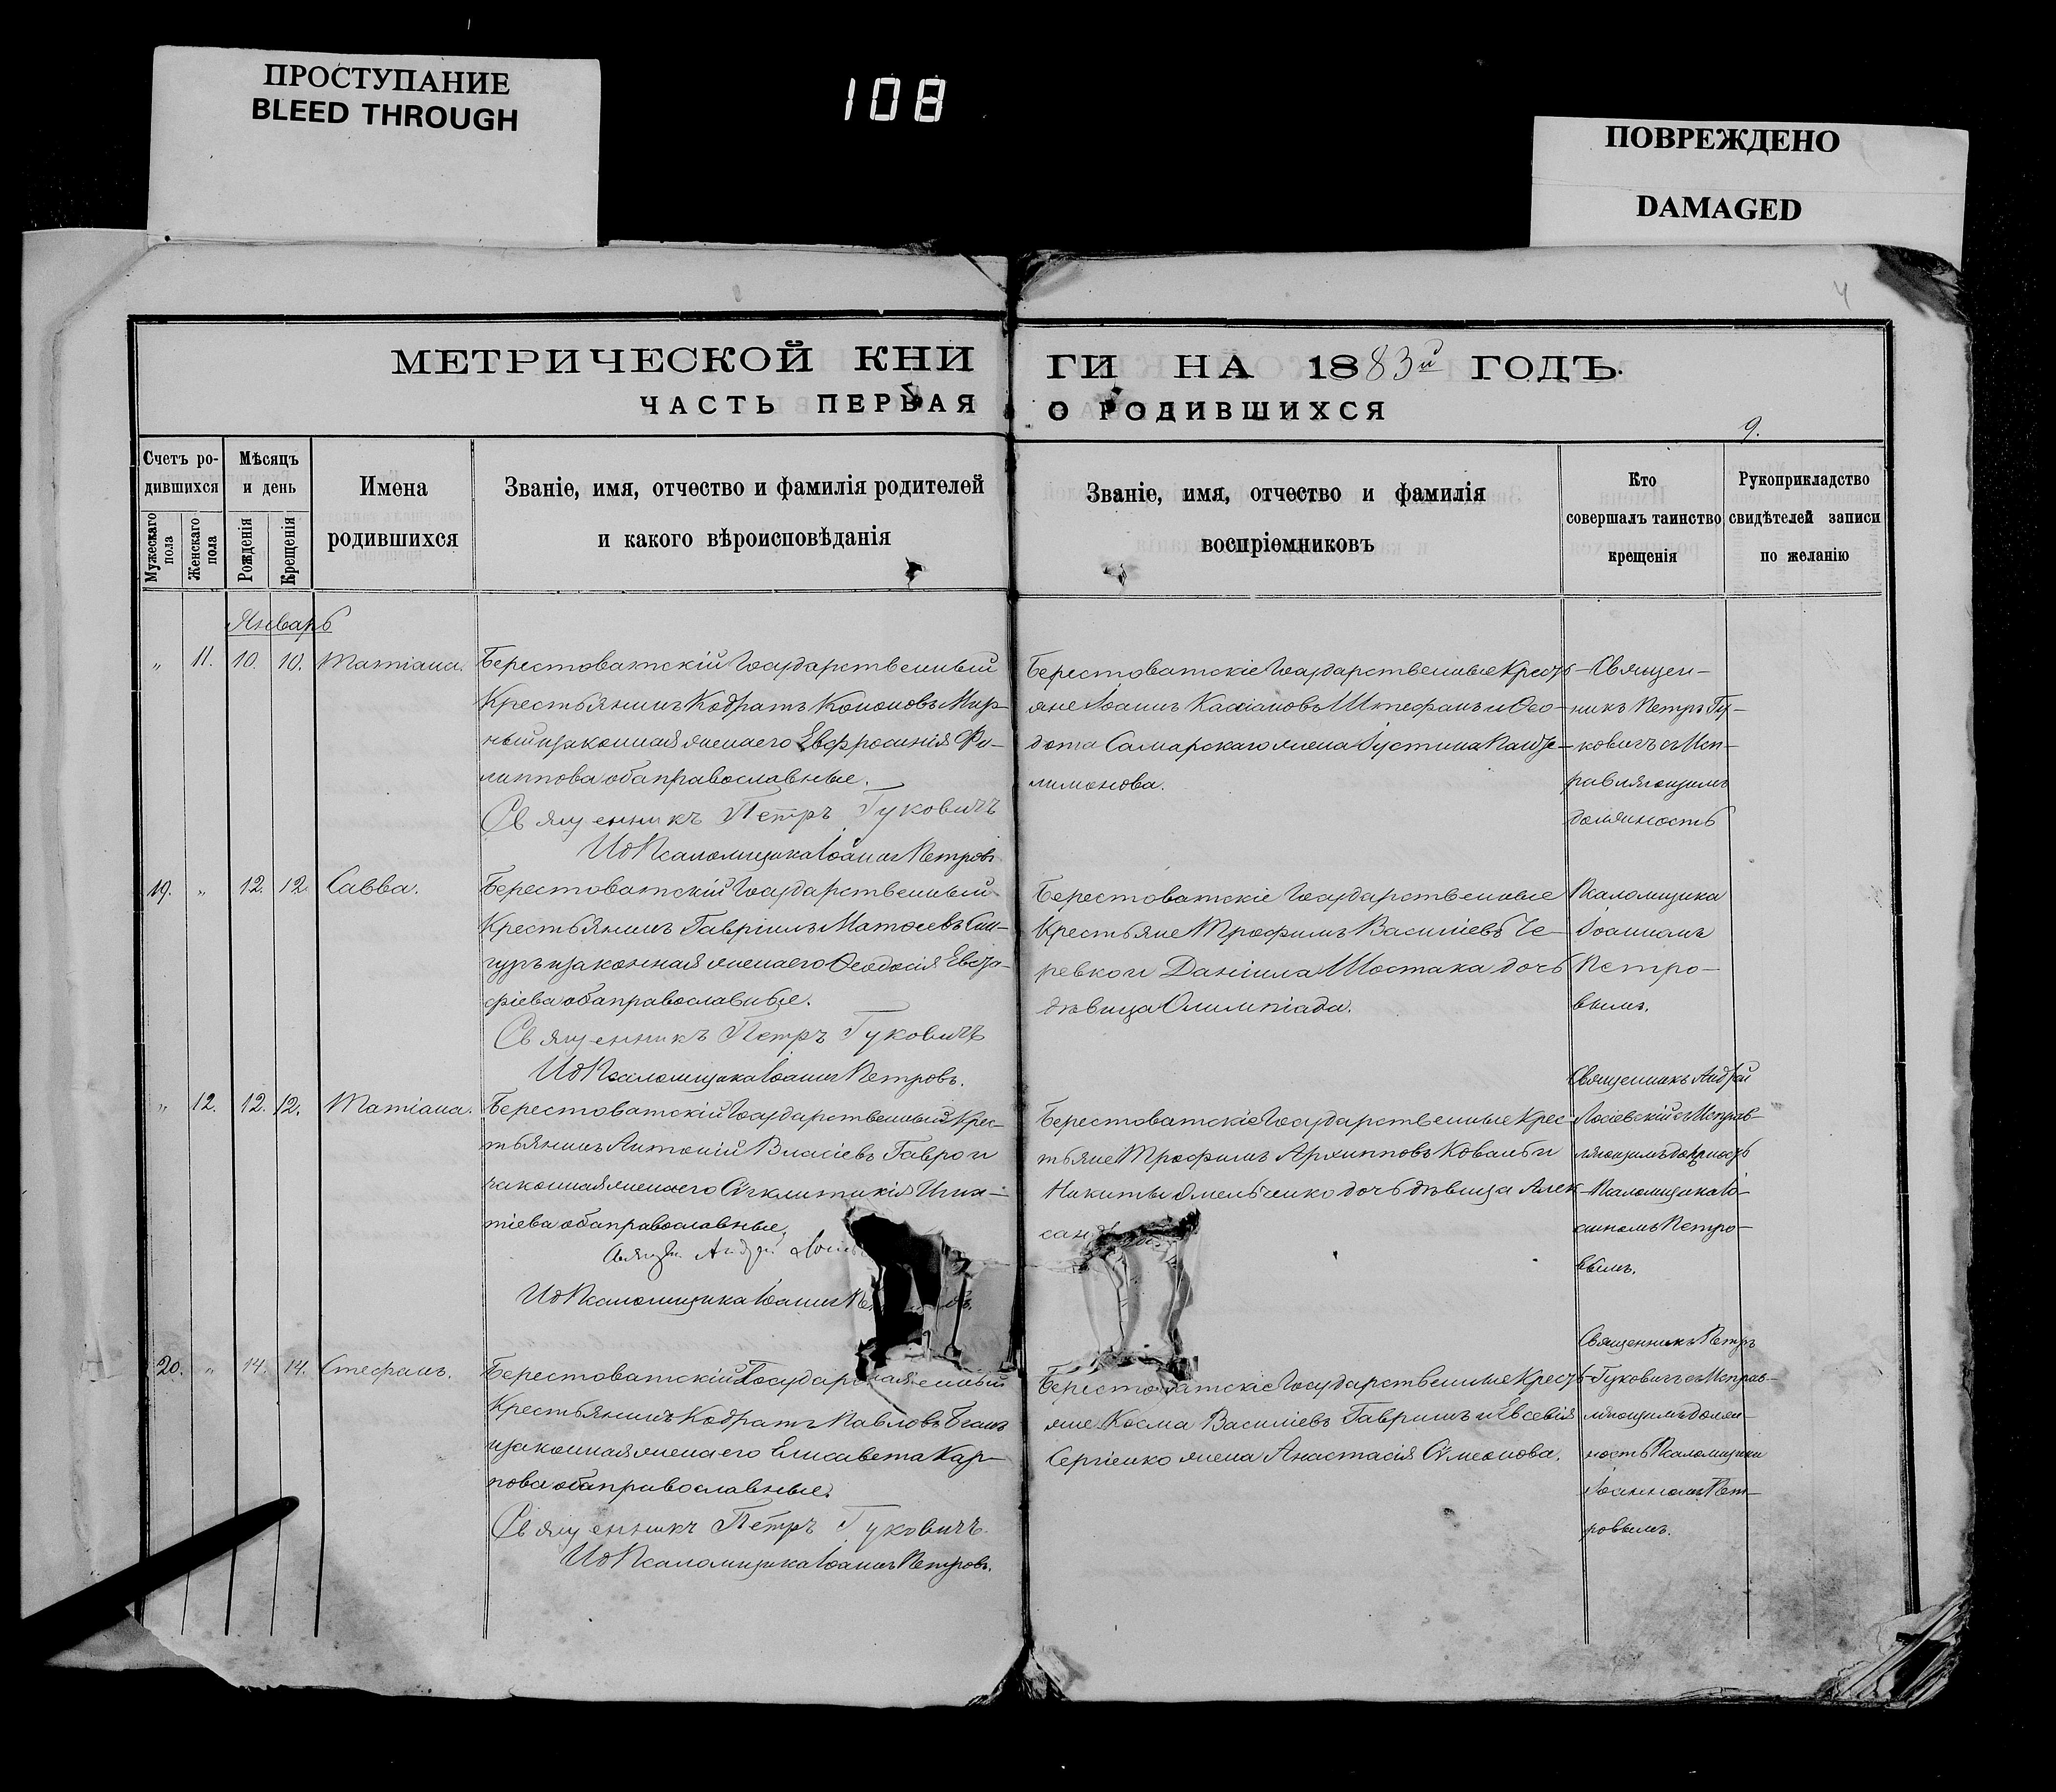 ПРОСТУПАНИЕ
BLEED THROUGH
108
ПОВРЕЖДЕНО
DAMAGED
4
МЕТРИЧЕСКОЙ КНИ
ГИ НА 1883й ГОДЪ.
ЧАСТЬ ПЕРВАЯ
О РОДИВШИХСЯ
9.
Счетъ ро-
дившихся
Мужескаго пола
Женскаго пола
Мѣсяцъ
и день
Рожденія
Крещенія
Имена
родившихся
Званіе, имя, отчество и фамилія родителей
и какого вѣроисповѣданія
Званіе, имя, отчество и фамилія
воспріемниковъ
Кто
совершалъ таинство
крещенія
Рукоприкладство
свидѣтелей записи
по желанію
Январь
„ 11. 10. 10. Татіана.
Берестоватскій Государственный
Крестьянинъ Кодратъ Кононовъ Мир-
ный и законная жена его Евфросинія Фи-
липпова оба православные.
Священникъ Петръ Гуковичъ
ИдПсаломщика Іоаннъ Петровъ
Берестоватскіе Государственные Кресть-
яне Іоаннъ Кассіановъ Штефанъ и Фео-
дота Самарскаго жена Іустина Пантe-
лимонова.
Священ-
никъ Петръ Гу-
ковичъ съ Исп-
равляющимъ
должность
19. „ 12. 12. Савва.
Берестоватскій Государственный
Крестьянинъ Гавріилъ Матѳеевъ Син-
гуръ и законная жена его Ѳеодосія Евста-
фіева оба православные.
Священникъ Петръ Гуковичъ
ИдПсаломщика Іоаннъ Петровъ.
Берестоватскіе Государственные
Крестьяне Трофимъ Василіевъ Че-
ревко и Даніила Шостака дочь
дѣвица Олимпіада.
Псаломщика
Іоанномъ
Петро-
вымъ.
„ 12. 12. 12. Татіана.
Берестоватскій Государственный Крес-
тьянинъ Антоній Власіевъ Гавро и
законная жена его Сѵнклитикія Игна-
тіева оба православные,
Андрей
ИдПсаломщика Іоаннъ
Берестоватскіе Государственные Крес-
тьяне Трофимъ Архипповъ Коваль и
Никиты Омельченко дочь дѣвица Алек-
сан
Священникъ Андрей
съ Исправ-
ляющимъ должность
Псаломщика Іо-
анномъ Петро-
вымъ.
20. „ 14. 14. Стефанъ.
Берестоватскій Государственный
Крестьянинъ Кодратъ Павловъ
и законная жена его Елисавета Кар-
пова оба православные.
Священникъ Петръ Гуковичъ.
ИдПсаломщика Іоаннъ Петровъ.
Берестоватскіе Государственные Кресть-
яне Косма Василіевъ Гавришъ и Евсевія
Сергіенко жена Анастасія Сѵмеонова.
Священникъ Петръ
Гуковичъ съ Исправ-
ляющимъ долж-
ность Псаломщика
Іоанномъ Пет-
ровымъ.